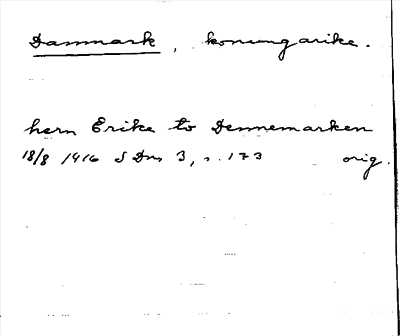 Danmark, konungarike.
hern Erike to Dennemarken
18/8 1416 S Dns 3, s. 173 orig.